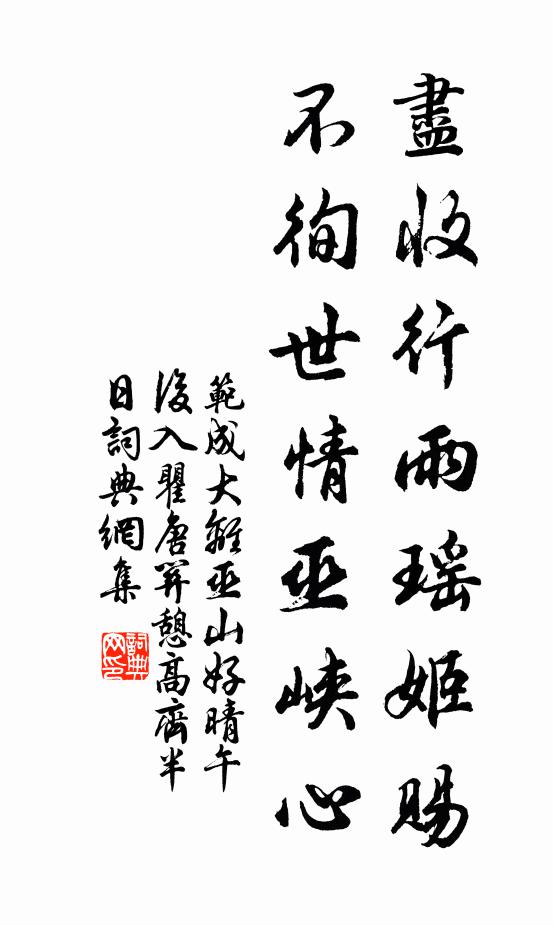 盡收行雨瑤姬賜
不徇世情巫峽心
範成大離巫山好晴午
後入瞿唐關憩高齋半
日詞典網集
詞典
网